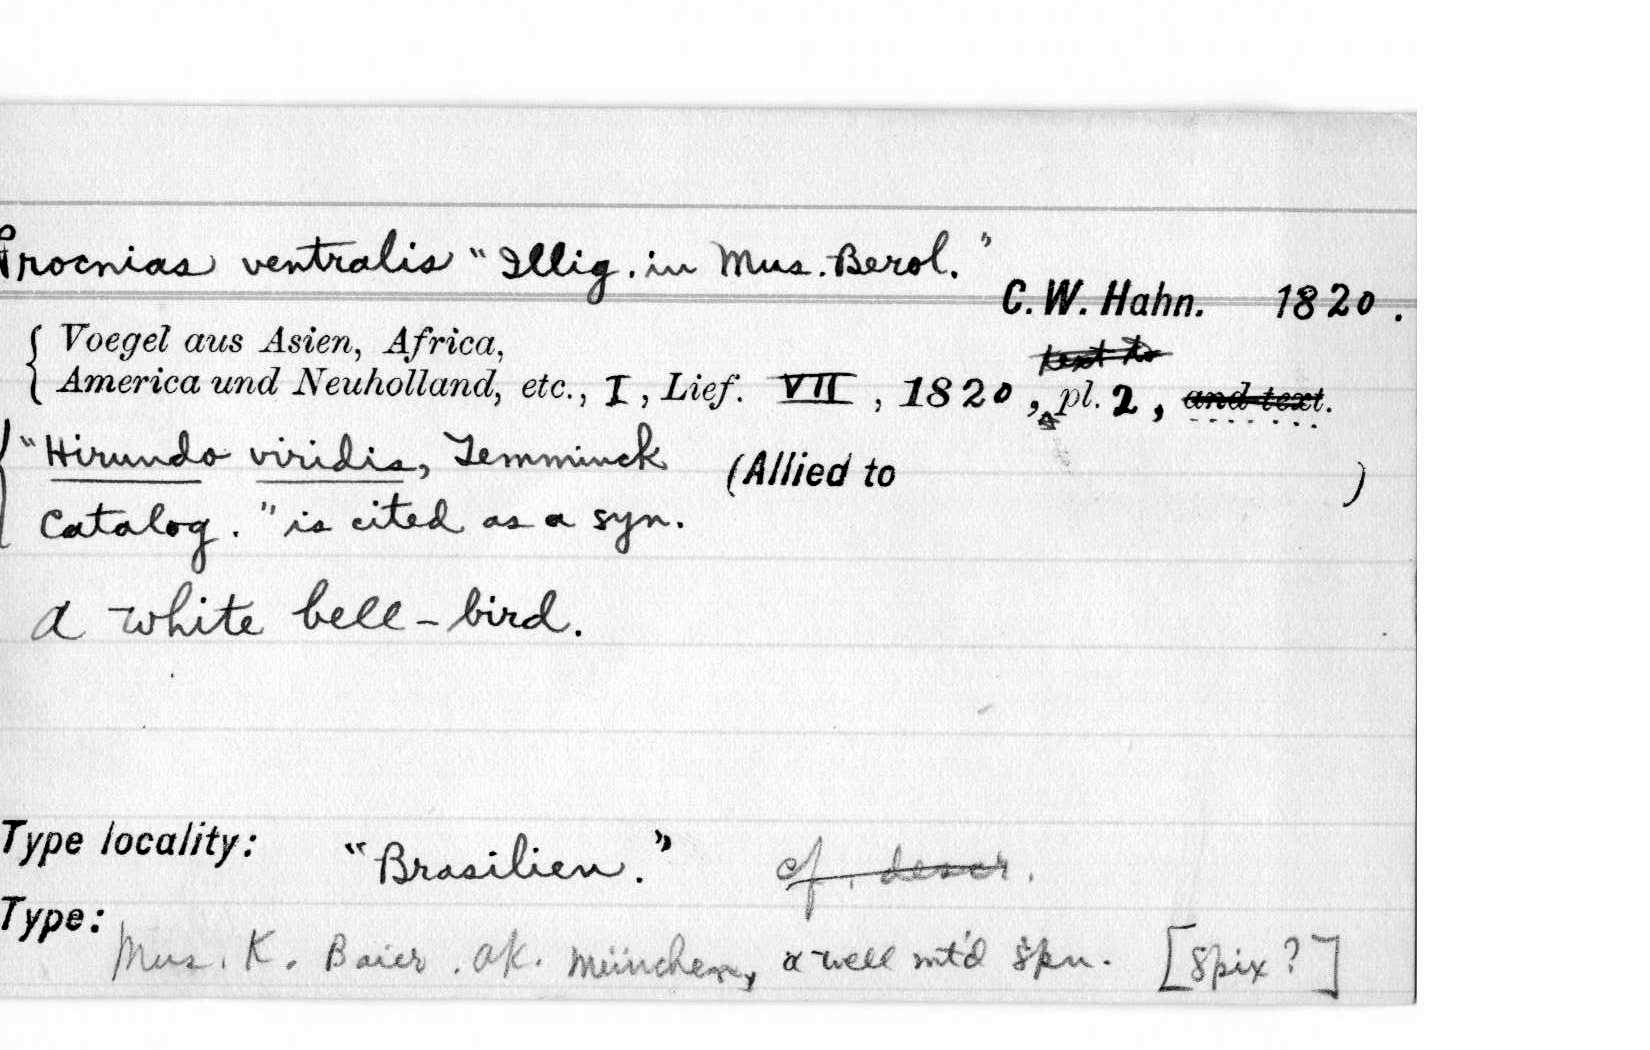 Procnias ventralis "Illig. in Mus. Berol."
C. W. Hahn. 1820.
Voegel aus Asien, Africa,
text to
America und Neuholland, etc., I, Lief. VII, 1820, pl. 2, and text.
"Hirundo viridis, Temminck
(Allied to )
Catalog." is cited as a syn.
A white bell-bird.
Type locality: "Brasilien." cf. descr.
Type: Mus. K. Baier. Ak. München, a well mt'd spn. [Spix?]